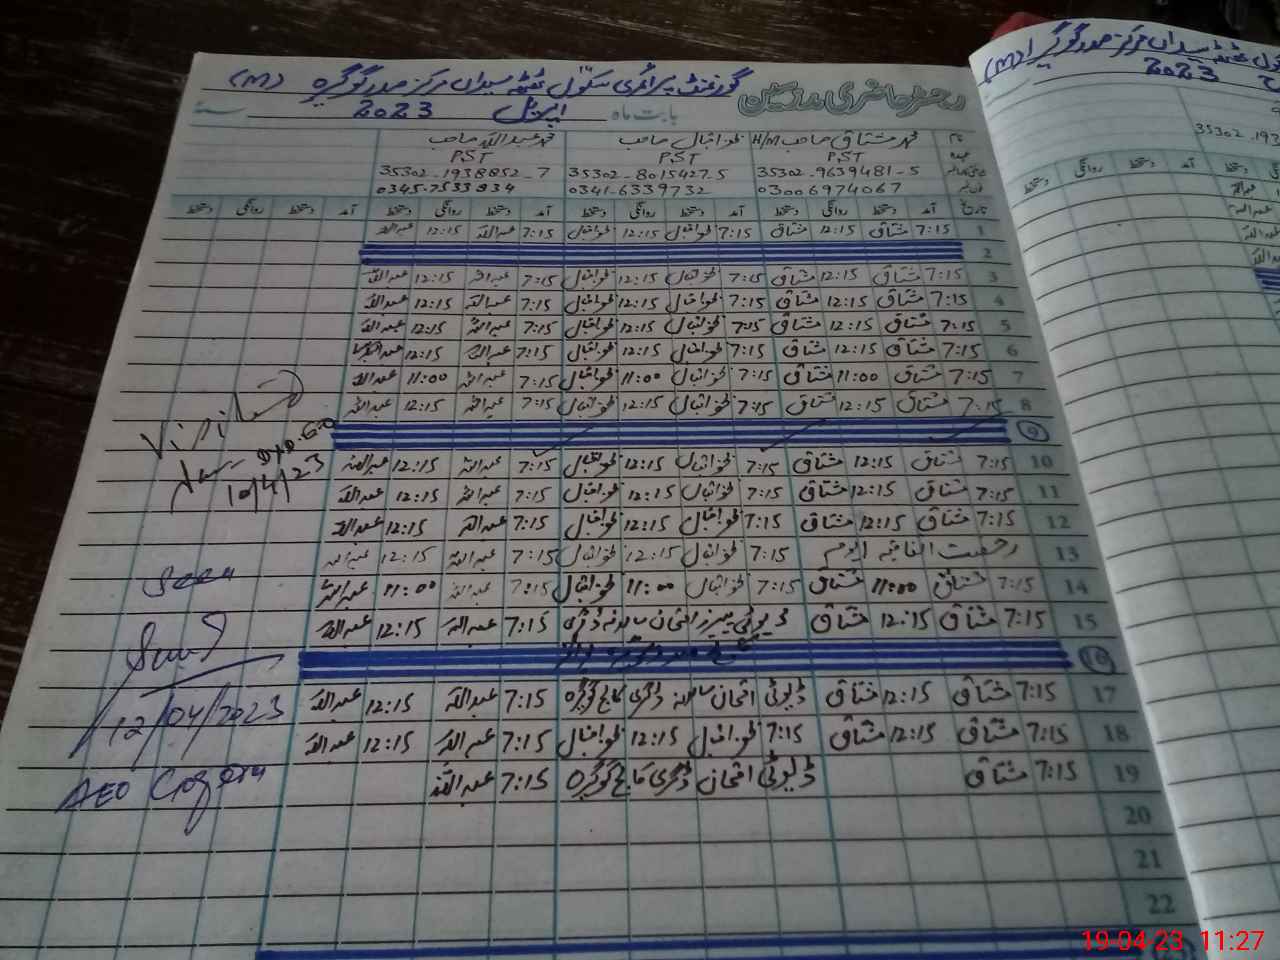 رجسٹر حاضری مدرسین
گورنمنٹ پرائمری سکول ٹھٹھہ سیداں مرکز صدر گوگیرہ (M)
بابت ماہ اپریل 2023 سنہ
نام محمد مشتاق صاحب H/M ظفر اقبال صاحب محمد عبداللہ صاحب
عہدہ PST PST PST
35302-9639481-5 35302-8015427-5 35302-1938852-7
03006974067 0341-6339732 0345-7533834
تاریخ آمد دستخط روانگی دستخط آمد دستخط روانگی دستخط آمد دستخط روانگی دستخط آمد دستخط روانگی دستخط
1 7:15 مشتاق 12:15 مشتاق 7:15 ظفر اقبال 12:15 ظفر اقبال 7:15 عبداللہ 12:15 عبداللہ
2
3 7:15 مشتاق 12:15 مشتاق 7:15 ظفر اقبال 12:15 ظفر اقبال 7:15 عبداللہ 12:15 عبداللہ
4 7:15 مشتاق 12:15 مشتاق 7:15 ظفر اقبال 12:15 ظفر اقبال 7:15 عبداللہ 12:15 عبداللہ
5 7:15 مشتاق 12:15 مشتاق 7:15 ظفر اقبال 12:15 ظفر اقبال 7:15 عبداللہ 12:15 عبداللہ
6 7:15 مشتاق 12:15 مشتاق 7:15 ظفر اقبال 12:15 ظفر اقبال 7:15 عبداللہ 12:15 عبداللہ
7 7:15 مشتاق 11:00 مشتاق 7:15 ظفر اقبال 11:00 ظفر اقبال 7:15 عبداللہ 11:00 عبداللہ
8 7:15 مشتاق 12:15 مشتاق 7:15 ظفر اقبال 12:15 ظفر اقبال 7:15 عبداللہ 12:15 عبداللہ
9
10 7:15 مشتاق 12:15 مشتاق 7:15 ظفر اقبال 12:15 ظفر اقبال 7:15 عبداللہ 12:15 عبداللہ
11 7:15 مشتاق 12:15 مشتاق 7:15 ظفر اقبال 12:15 ظفر اقبال 7:15 عبداللہ 12:15 عبداللہ
12 7:15 مشتاق 12:15 مشتاق 7:15 ظفر اقبال 12:15 ظفر اقبال 7:15 عبداللہ 12:15 عبداللہ
13 رخصت اتفاقیہ 7:15 ظفر اقبال 12:15 ظفر اقبال 7:15 عبداللہ 12:15 عبداللہ
14 7:15 مشتاق 11:00 مشتاق 7:15 ظفر اقبال 11:00 ظفر اقبال 7:15 عبداللہ 11:00 عبداللہ
15 7:15 مشتاق 12:15 مشتاق ڈیوٹی پیپرز امتحان سالانہ 7:15 عبداللہ 12:15 عبداللہ
16
17 7:15 مشتاق 12:15 مشتاق ڈیوٹی امتحان سالانہ ڈگری کالج گوگیرہ 7:15 عبداللہ 12:15 عبداللہ
18 7:15 مشتاق 12:15 مشتاق 7:15 ظفر اقبال 12:15 ظفر اقبال 7:15 عبداللہ 12:15 عبداللہ
19 7:15 مشتاق ڈیوٹی امتحان ڈگری کالج گوگیرہ 7:15 عبداللہ
20
21
22
Visited
10/4/23
Seen
12/04/2023
AEO Gogera
(M)
2023
19-04-23 11:27